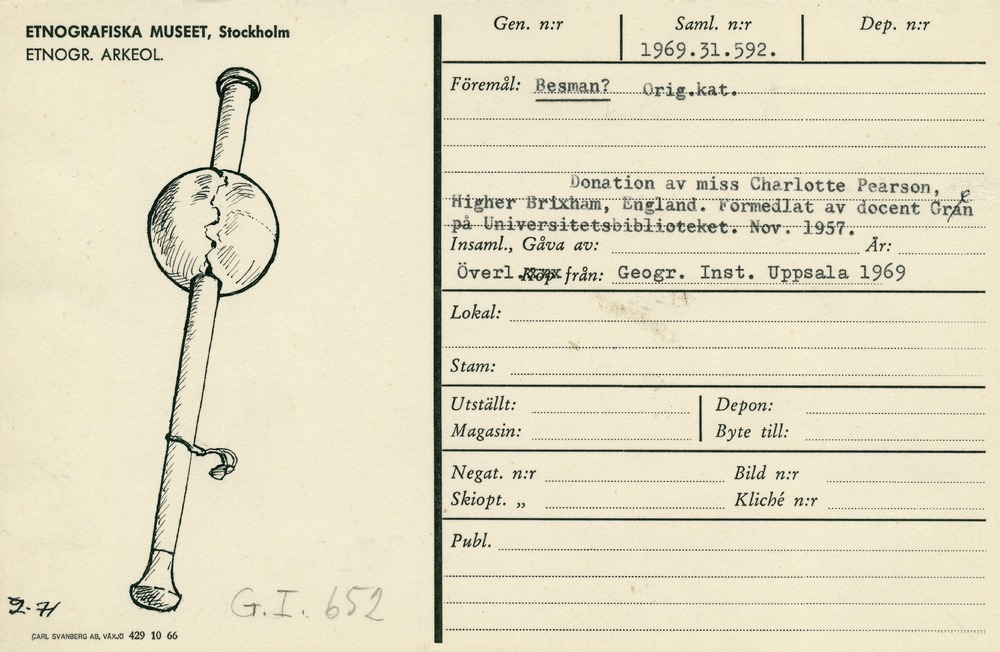 ETNOGRAFISKA MUSEET, Stockholm
ETNOGR. ARKEOL.
Gen. n:r
Saml. n:r
1969.31.592.
Dep. n:r
Föremål: Besman? Orig.kat.
Donation av miss Charlotte Pearson,
Higher Brixham, England. Förmedlat av docent Gren
på Universitetsbiblioteket. Nov. 1957.
Insaml., Gåva av: År:
Överl. från: Geogr. Inst. Uppsala 1969
Lokal:
Stam:
Utställt: Depon:
Magasin: Byte till:
Negat. n:r Bild n:r
Skiopt. „ Kliché n:r
Publ.
G.I. 652
CARL SVANBERG AB, VÄXJÖ 429 10 66